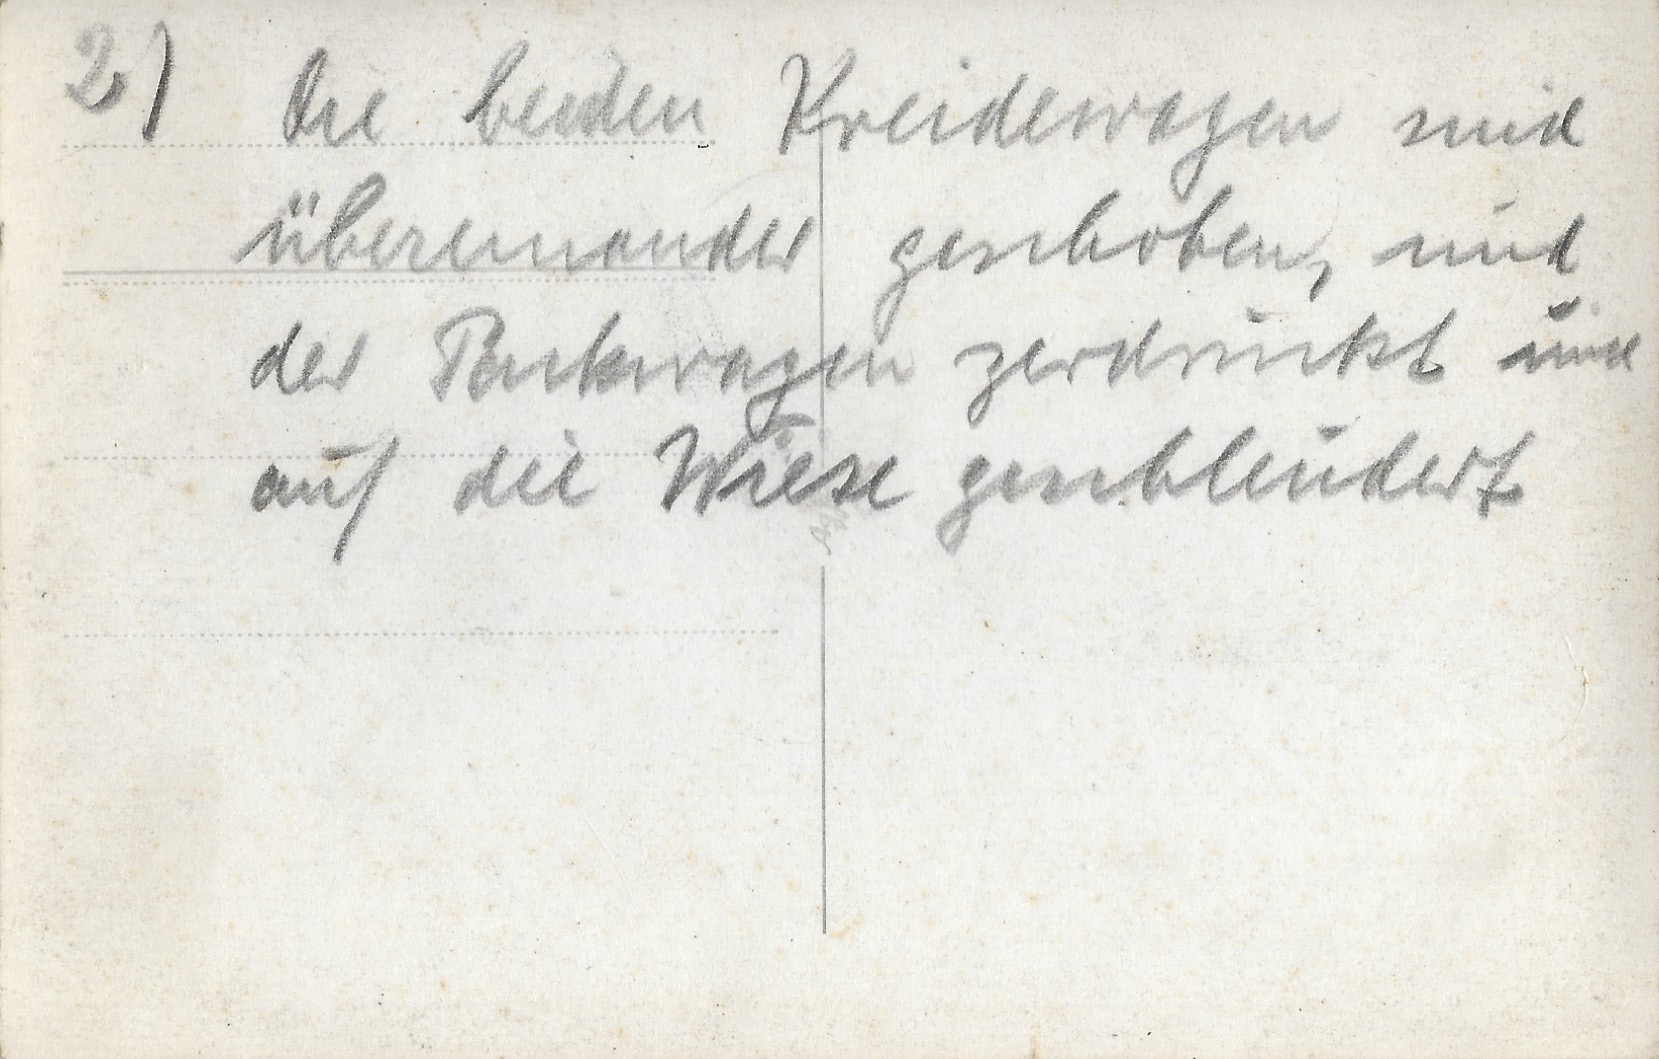 2) Die beiden Kreidewagen sind
übereinander geschoben, und
der Packwagen zerdrückt und
auf die Wiese geschleudert